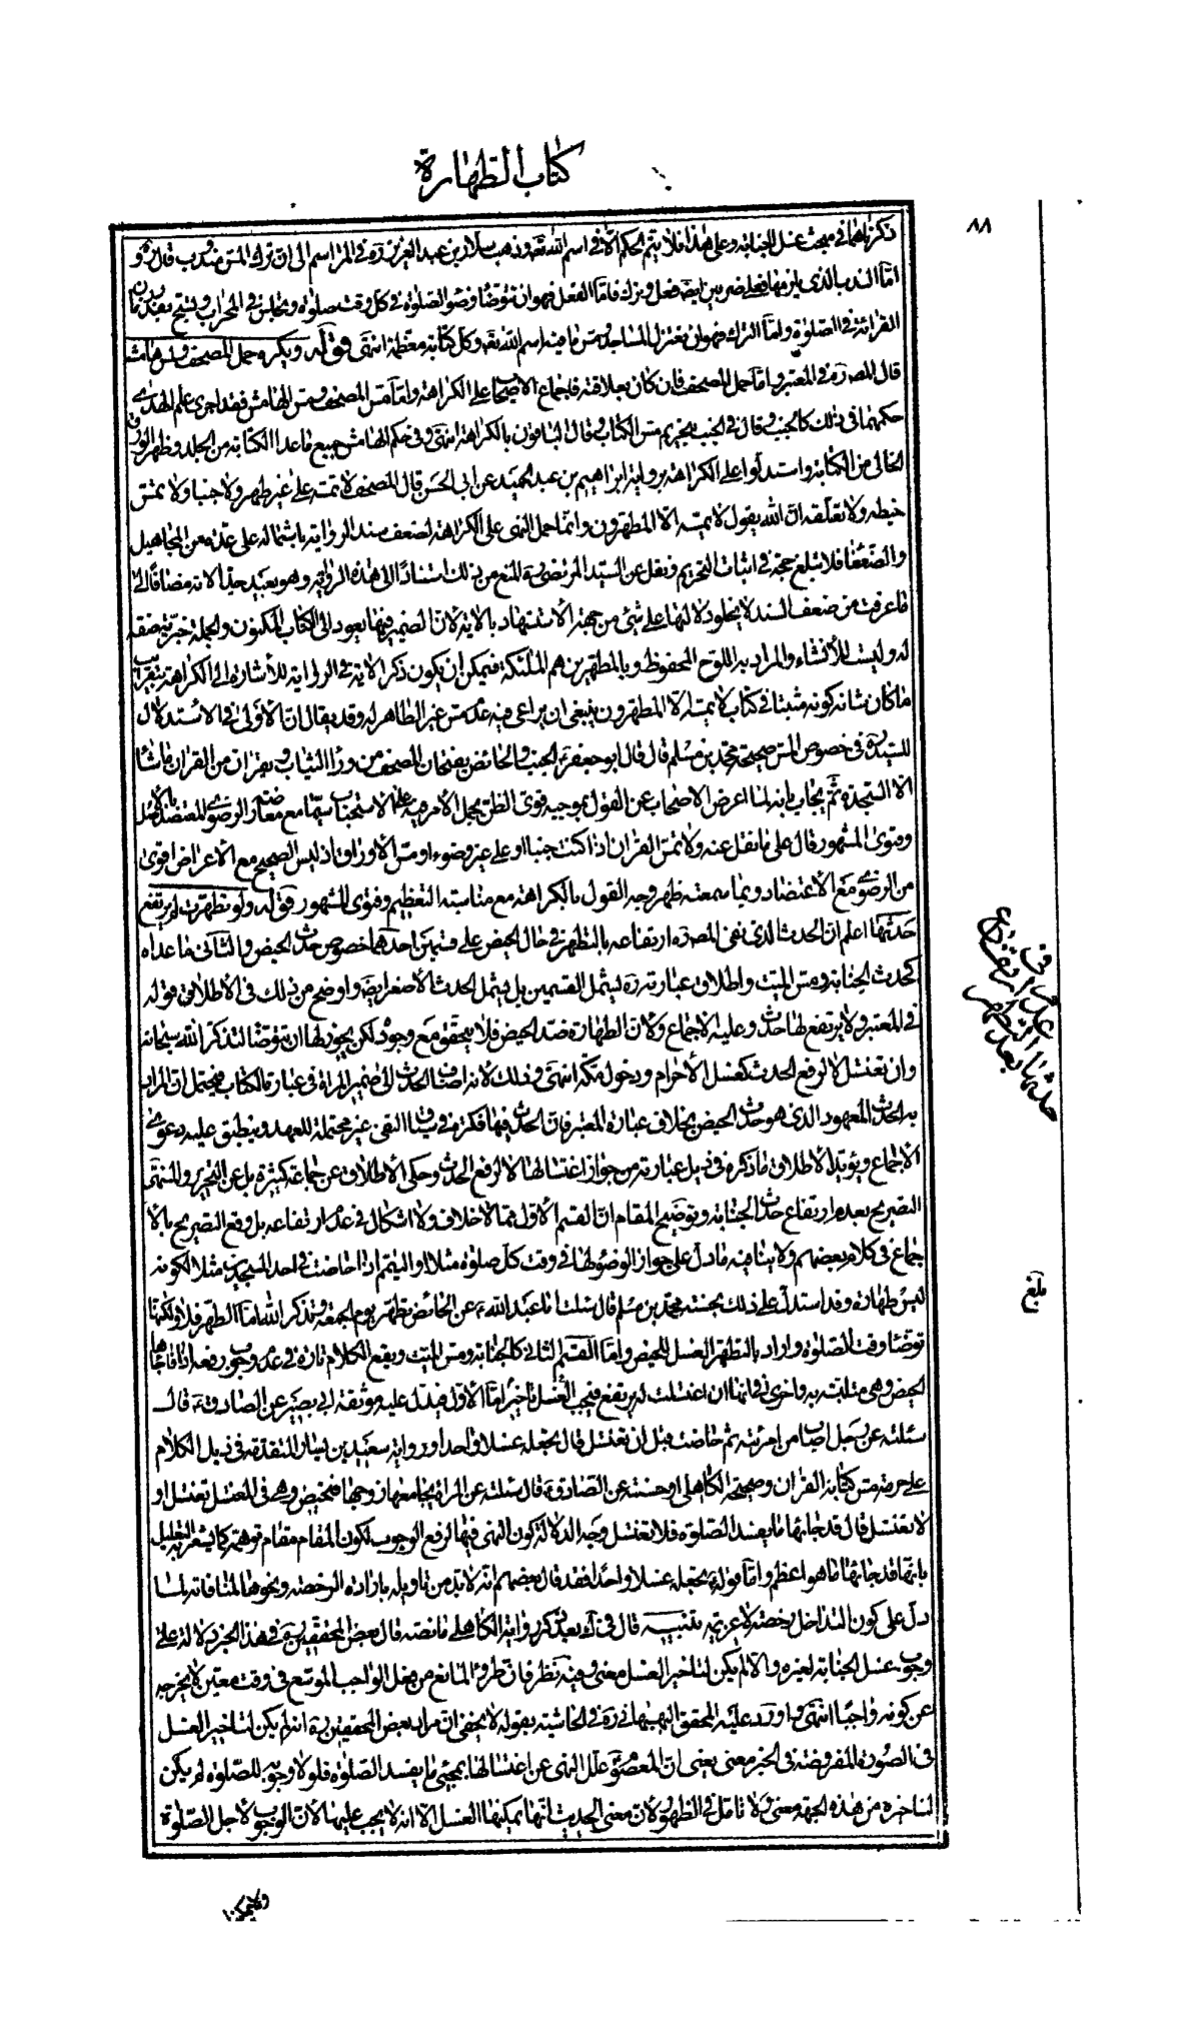 كتاب الطهارة
٨٨
ذكرناهما في مبحث غسل الجنابة وعلى هذا فلا يتم الحكم الا في اسم الله تعه وذهب سلار بن عبد العزيز ره في المراسم الى ان ترك المس مندوب قال ره و
اما الندب الذي يلزمها فعلى ضربين ايضا فعل وترك فاما الفعل فهو ان تتوضأ وضوء الصلوة في كل وقت صلوة وتجلس في المحراب وتسبح بقدر زمان
القرائة في الصلوة واما الترك فهو ان تعتزل المساجد ومس ما فيه اسم الله تعه وكل كتابة معظمة انتهى قوله ويكره حمل المصحف ولمس هامشه
قال المصره في المعتبر واما حمل المصحف فان كان بعلاقته فاجماع الاصحاب على الكراهة واما مس المصحف ومس الهامش فقد اجرى علم الهدى
حكمهما في ذلك كالجنب وقال في الجنب يحرم مس الكتاب وقال الباقون بالكراهة انتهى وفي حكم الهامش جميع ما عدا الكتابة من الجلد وظهر الورق
الخالي من الكتابة واستدلوا على الكراهة برواية ابراهيم بن عبد الحميد عن ابي الحسن قال المصحف لا تمسه على غير طهر ولا جنبا ولا تمس
خيطه ولا تعلقه ان الله يقول لا يمسه الا المطهرون وانما حمل النهى على الكراهة لضعف سند الرواية باشتماله على عدة من المجاهيل
والضعفا فلا تبلغ حجة في اثبات التحريم ونقل عن السيد المرتضى ره المنع من ذلك استنادا الى هذه الرواية وهو بعيد جدا لانه مضافا الى
ما عرفت من ضعف السند لا يخلو دلالتها على شئ من جهة الاستشهاد بالاية لان الضمير فيها يعود الى الكتاب المكنون والجملة خبرية صفة
له وليست للأنشاء والمراد به اللوح المحفوظ وبالمطهرين هم الملئكة فيمكن ان يكون ذكر الاية في الرواية للأشارة الى الكراهة بتقريب
ما كان شانه كونه مثبتا في كتاب لا يمسه الا المطهرون ينبغي ان يراعى فيه عدم مس غير الطاهر له وقد يقال ان الأولى في الاستدلال
للسيد ره في خصوص المس صحيحة محمد بن مسلم قال قال ابو جعفر ع الجنب والحائض يفتحان المصحف من وراء الثياب ويقران من القران ما شائا
الا السجدة ثم يجاب بانه لما اعرض الاصحاب عن القول بوجوبه قوى الظن بحمل الأمر فيه على الاستحباب سيما مع معارضته الرضوي المعتضد بالأصل
وفتوى المشهور قال على ما نقل عنه ولا تمس القران اذا كنت جنبا او على غير وضوء ومس الأوراق اذ ليس الصحيح مع الاعراض اقوى
من الرضوي مع الاعتضاد وبما سمعته ظهر وجه القول بالكراهة مع مناسبته التعظيم وفتوى المشهور قوله ولو تطهرت لم يرتفع
حدثها اعلم ان الحدث الذي نفى المصره ارتفاعه بالتطهر في حال الحيض على قسمين احدهما خصوص حدث الحيض والثاني ما عداه
كحدث الجنابة ومس الميت واطلاق عبارته ره يشمل القسمين بل يشمل الحدث الأصغر ايضا واوضح من ذلك في الاطلاق قوله
في المعتبر ولا يرتفع لها حدث وعليه الاجماع ولان الطهارة ضد الحيض فلا يتحقق مع وجوده لكن يجوز لها ان تتوضأ لتذكر الله سبحانه
وان تغتسل لا لرفع الحدث كغسل الأحرام ودخول مكة انتهى وذلك لانه اضاف الحدث الى ضمير المراة في عبارة الكتاب فيحتمل ان المراد
به الحدث المعهود الذي هو حدث الحيض بخلاف عبارة المعتبر فان الحدث فيها نكرة في سياق النفى غير محتملة للعهد وينطبق عليه دعوى
الاجماع ويؤيد الاطلاق ما ذكره في ذيل عبارته من جواز اغتسالها لا لرفع الحدث وحكى الأطلاق عن جماعة كثيرة بل عن التحرير والمنتهى
التصريح بعدم ارتفاع حدث الجنابة وتوضيح المقام ان القسم الأول مما لا خلاف ولا اشكال في عدم ارتفاعه بل وقع التصريح بالا
جماع في كلام بعضهم ولا ينافيه ما دل على جواز الوضوء لها في وقت كل صلوة مثلا او التيمم اذا حاضت في احد المسجدين مثلا لكونه
ليس طهارة وقد استدل على ذلك بحسنة محمد بن مسلم قال سئلت ابا عبد الله ع عن الحائض تطهر يوم الجمعة وتذكر الله اما الطهر فلا ولكنها
توضأ وقت الصلوة واراد بالتطهر الغسل للحيض واما القسم الثاني كالجنابة ومس الميت ويقع الكلام تارة في عدم وجوب رفعه اذا فاجاها
الحيض وهي متلبسة به واخرى في انها ان اغتسلت لم يرتفع فيجب الغسل تاخيرا اما الأول فيدل عليه موثقة ابي بصير عن الصادق ع قال
سئلته عن رجل اصاب من امرئته ثم حاضت قبل ان تغتسل قال تجعله غسلا واحدا ورواية سعيد بن يسار المتقدمة في ذيل الكلام
على حرمة مس كتابة القران وصحيحة الكاهلي او حسنته عن الصادق ع قال سئلته عن المراة يجامعها زوجها فتحيض وهي في المغتسل تغتسل او
لا تغتسل قال قد جائها ما يفسد الصلوة فلا تغتسل وجه الدلالة كون النهى فيها لرفع الوجوب لكون المقام مقام توهمه كما يشعر به التعليل
بانها قد جائها ما هو اعظم واما قوله تجعله غسلا واحدا فقد قال بعضهم انه لا بد من تاويله بارادة الرخصة ونحوها لمنافاته لما
دل على كون التداخل رخصة لا عزيمة تنبيه قال في ك بعد ذكر رواية الكاهلي ما نصه قال بعض المحققين ره في هذا الخبر دلالة على
وجوب غسل الجنابة لغيره والا لم يكن لتاخير الغسل معنى وفيه نظر فان طرو المانع من فعل الواجب الموسع في وقت معين لا يخرجه
عن كونه واجبا انتهى واورد عليه المحقق البهبهاني ره في الحاشية بقوله لا يخفى ان مراد بعض المحققين ره انه لم يكن لتاخير الغسل
في الصورة المفروضة في الخبر معنى يعنى ان المعصوم علل النهى عن اغتسالها بمجئ ما يفسد الصلوة فلولا وجوبه للصلوة لم يكن
لتاخره من هذه الجهة معنى ولا تامل في الظهور لان معنى الحديث انها يمكنها الغسل الا انه لا يجب عليها لأن الوجوب لأجل الصلوة
بلغ